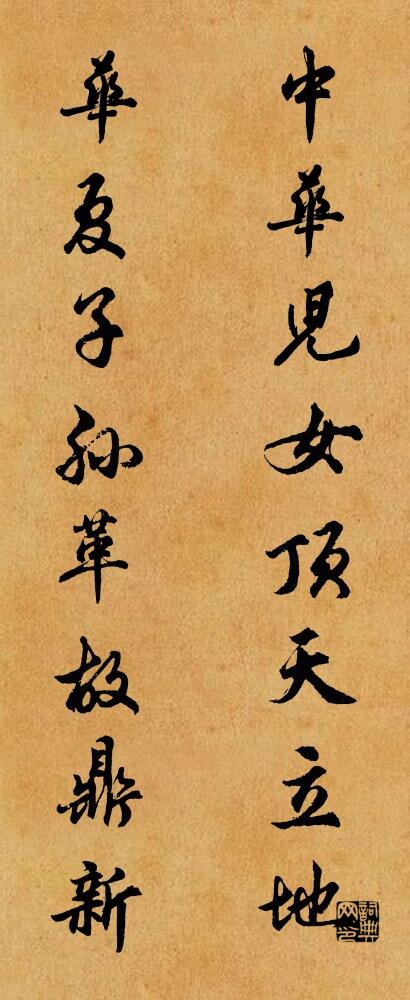 中華児女頂天立地
華夏子孫革故鼎新
詞典网印